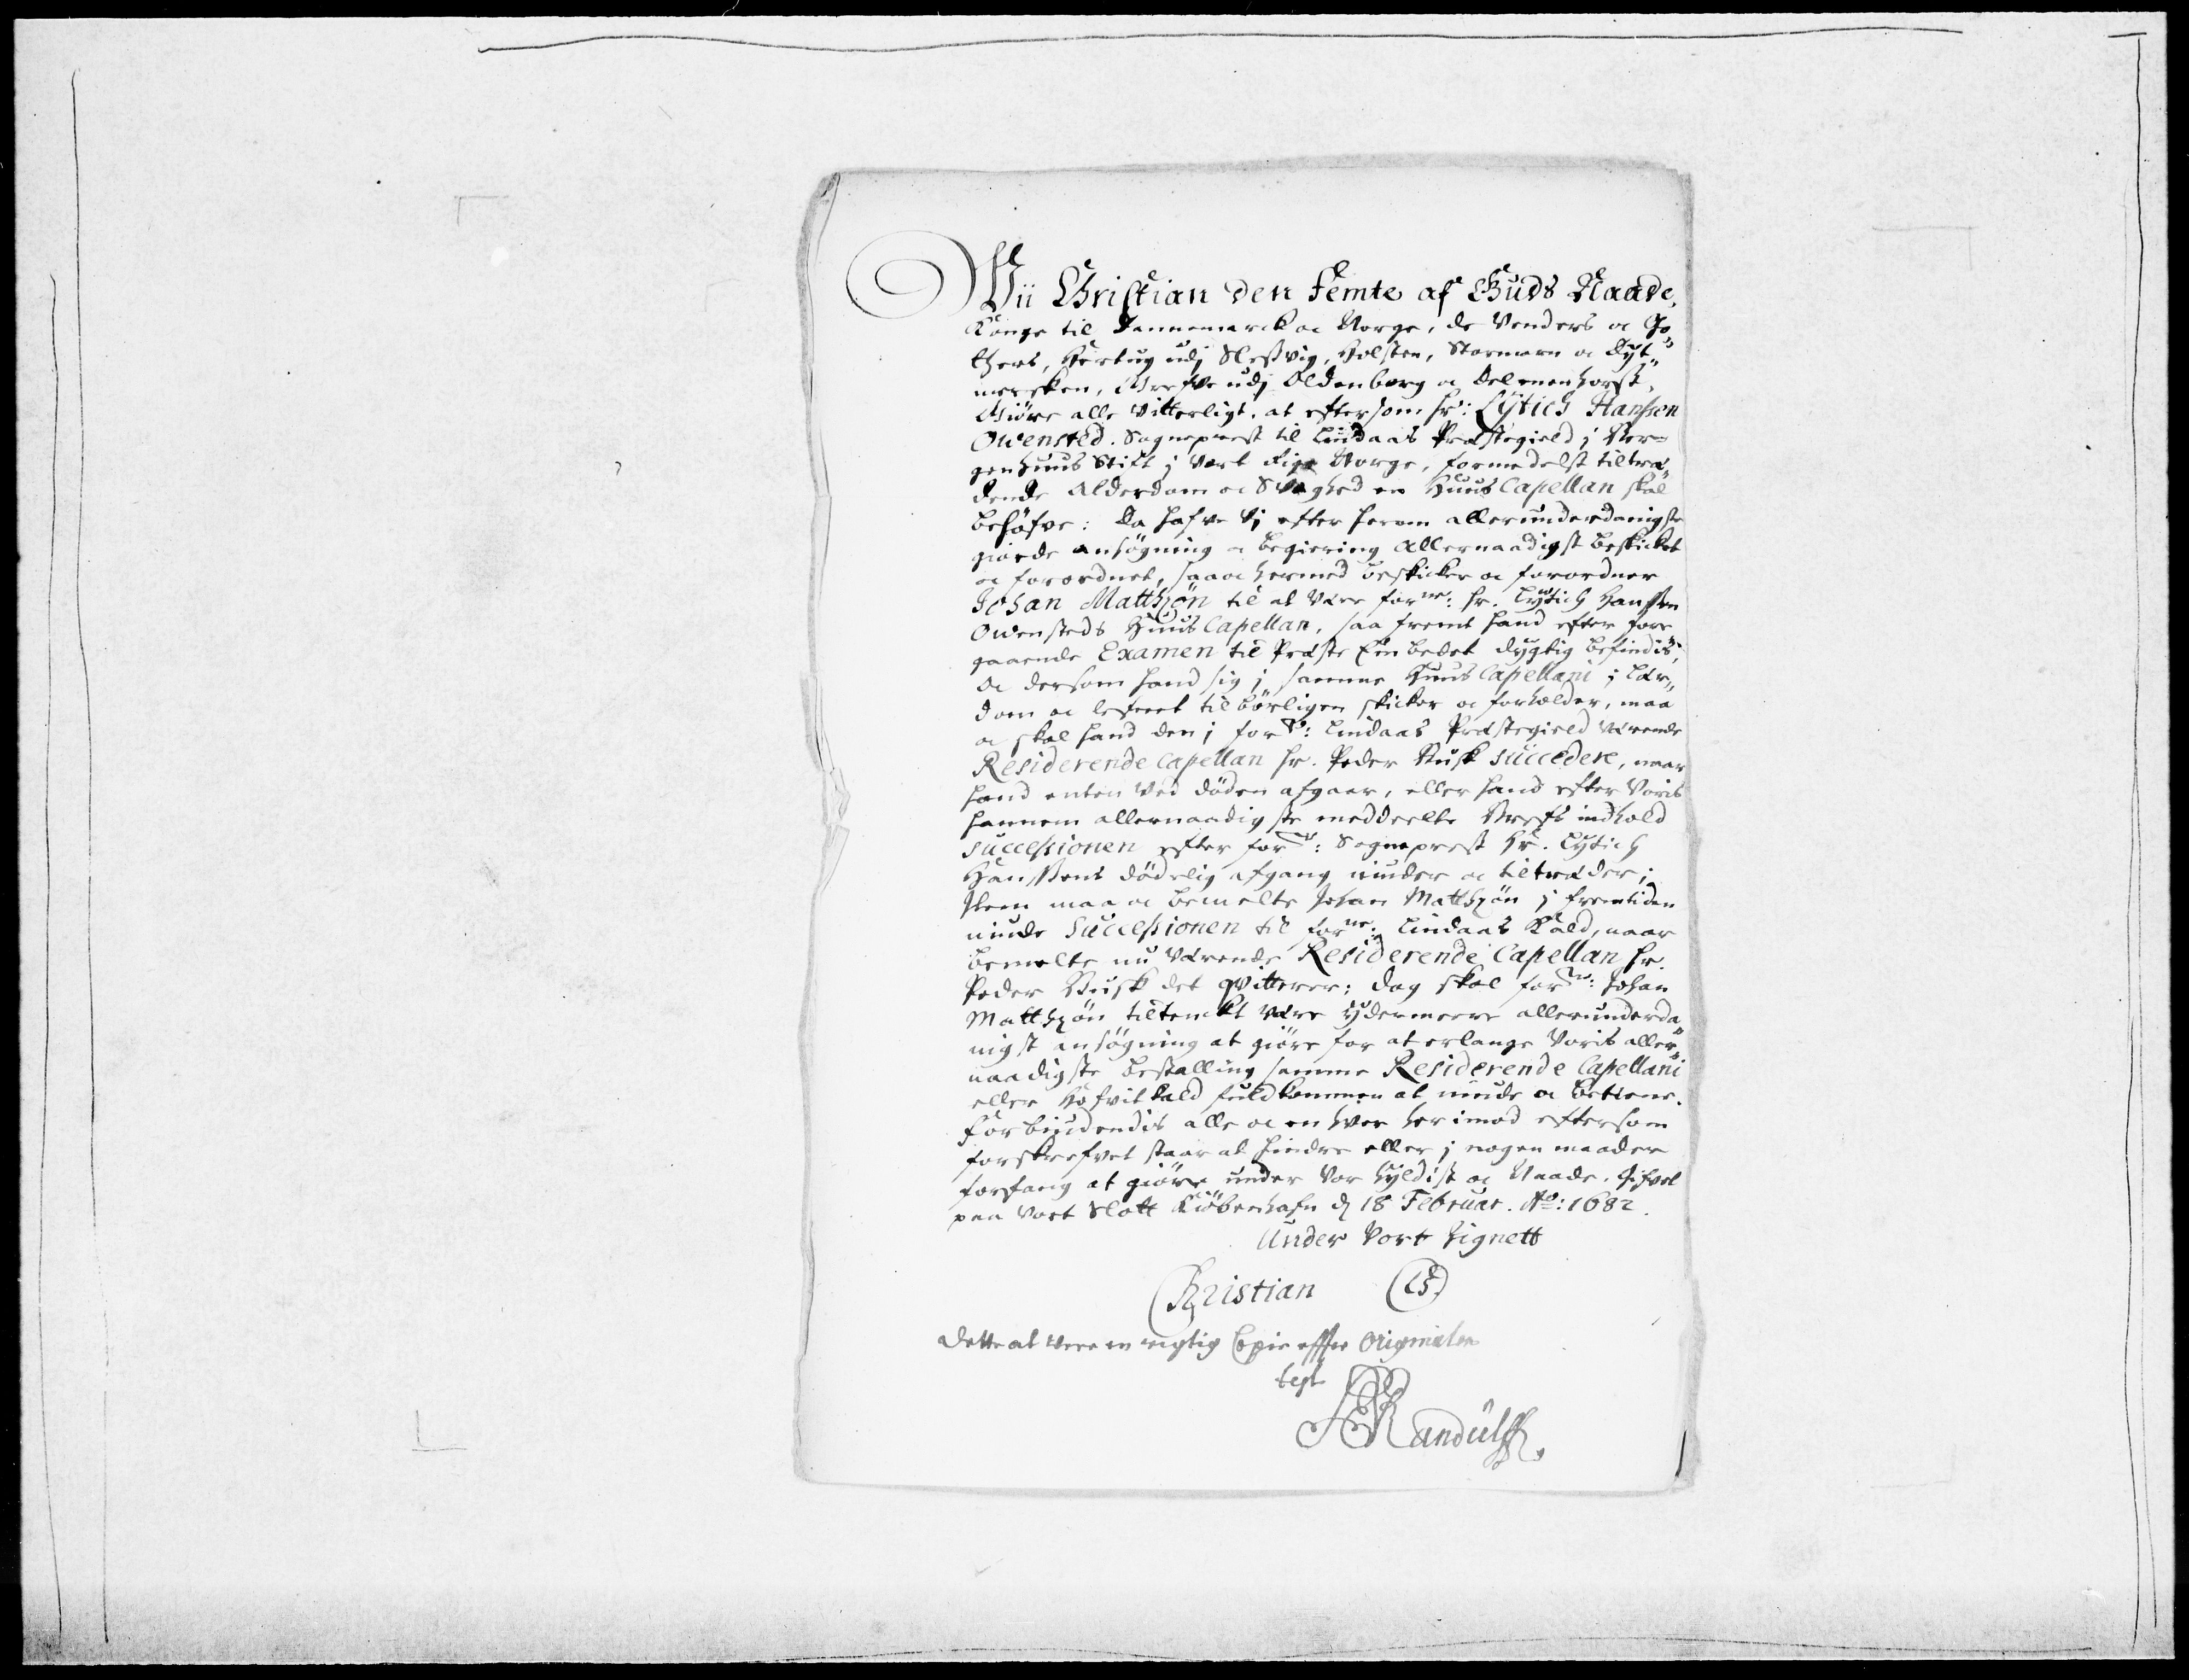 Vii Christian den Femte af Guds Naade,
Konge til Dannemarck oc Norge, de Venders oc Go„
thers, Hertug udj Sleszvig, Holsten, Stormarn oc Dyt„
mersken, Grefve udj Oldenborg oc Delmenhorst,
Giöre alle Vitterligt, at eftersom Hr: Lÿtich Hanszen
Owensted. Sogneprest til Lindaas Præstegield j Ber=
genhuus Stift j Vort Rige Norge, formedelst tiltræ„
dende Alderdom oc Svaghed en HuusCapellan skal
behöfve: Da hafve Vj efter herom allerunderdanigste
giorde ansögning oc begiering Allernaadigst beskicket
oc forordnet, saa oc hermed beskicker oc forordner
Johan Matthzön til at være forne: Hr. Lytich Hanszen
Owensteds HuusCapellan, saa fremt hand efter fore
gaaende Examen til Præste Embedet dygtig befindis,
oc dersom hand sig j samme HuusCapellani j Lær„
dom oc lefnet tilbörligen skicker oc forholder, maa
oc skal hand den j forne: Lindaas Præstegield værende
Residerende Capellan Hr. Peder Rusk succedere, naar
hand enten Ved döden afgaar, eller hand efter Voris
hannem allernaadigste meddeelte Brefs indhold
successionen efter forne: Sogneprest Hr. Lytich
Hanszens dödelig afgang niuder oc tiltræder;
Item maa oc bemelte Johan Matthzön j fremtiden
niude Successionen til forne: Lindaas Kald, naar
bemelte nu værende Residerende Capellan Hr.
Peder Rusk det qvitterer: Dog skal forne: Johan
Matthzön tiltenckt være ydermeere allerunderda„
nigst ansögning at giöre for at erlange Voris aller„
naadigste bestalling samme Residerende Capellani
eller Hofvitkald fuldkommen at niude oc betiene.
Forbiudendis alle oc en hver her imod eftersom
forskrefvet staar at hindre eller j nogen maader
forfang at giöre under Vor Hyldist oc Naade. Gifvet
paa Vort Slott Kiöbenhafn d 18 Februar. Ao: 1682.
Under Vort Signett
Christian (LS.)
Dette at være en rigtig Copie effter Originalen
test
Randulff.